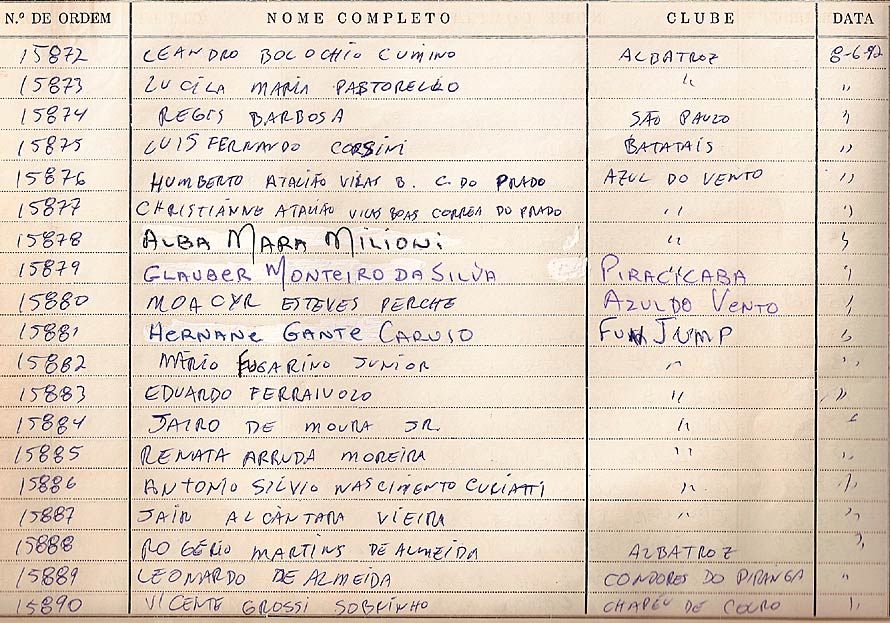 N.º DE ORDEM NOME COMPLETO CLUBE DATA
15872 LEANDRO BOLOCHIO CUMINO ALBATROZ 8-6-92
15873 LUCILA MARIA PASTORELLO " "
15874 REGIS BARBOSA SÃO PAULO "
15875 LUIS FERNANDO CORSINI BATATAIS "
15876 HUMBERTO ATALIÃO VILAS B. C. DO PRADO AZUL DO VENTO "
15877 CHRISTIANNE ATALIÃO VILAS BOAS CORREA DO PRADO " "
15878 ALBA MARA MILIONI " "
15879 GLAUBER MONTEIRO DA SILVA PIRACICABA "
15880 MOACYR ESTEVES PERCHE AZUL DO VENTO "
15881 HERNANE GANTE CARUSO FUN JUMP "
15882 MÁRIO FUGARINO JUNIOR " "
15883 EDUARDO FERRAIUOLO " "
15884 JAIRO DE MOURA JR. " "
15885 RENATA ARRUDA MOREIRA " "
15886 ANTONIO SILVIO NASCIMENTO CURIATTI " "
15887 JAIR ALCÂNTARA VIEIRA " "
15888 ROGÉRIO MARTINS DE ALMEIDA ALBATROZ "
15889 LEONARDO DE ALMEIDA CONDORES DO PIRANGA "
15890 VICENTE GROSSI SOBRINHO CHAPÉU DE COURO "